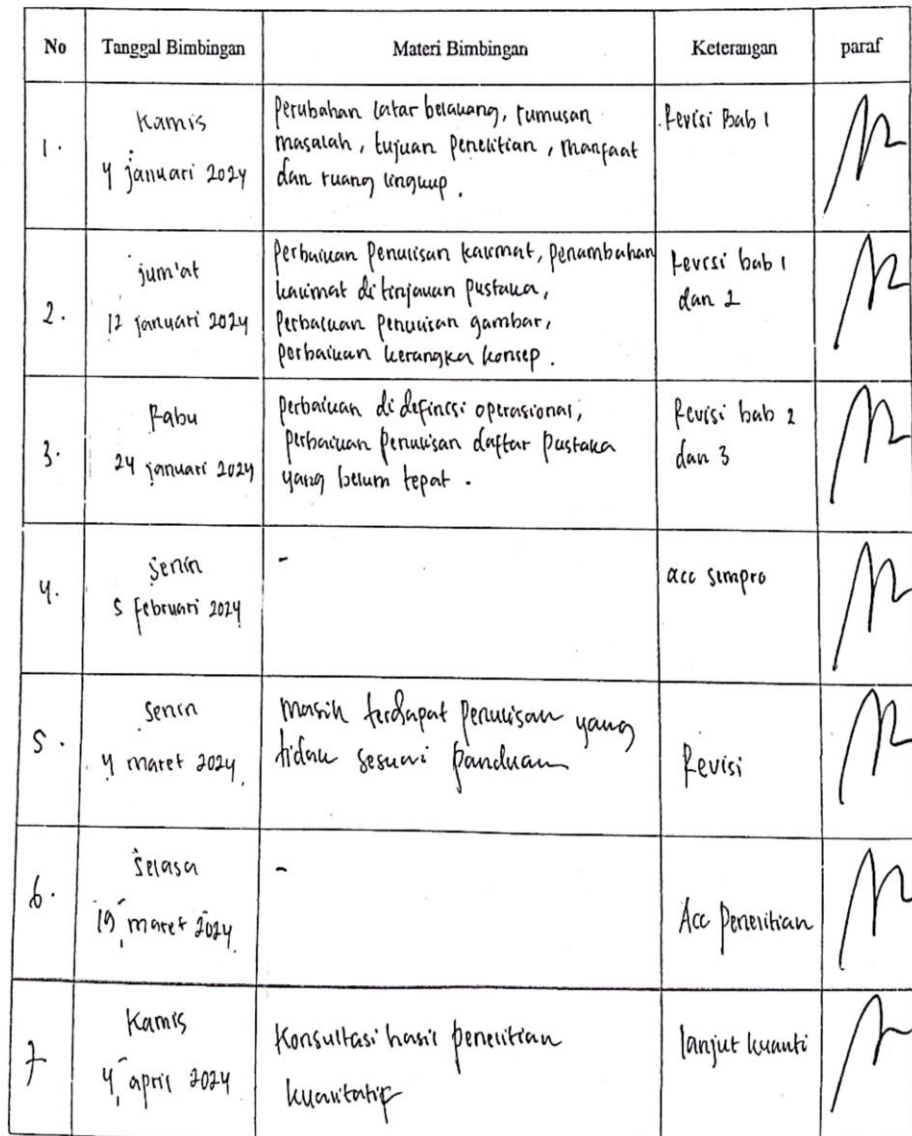 No Tanggal Bimbingan Materi Bimbingan Keterangan paraf
1. Kamis
4 januari 2024
Perubahan latar belakang, rumusan
masalah, tujuan penelitian, manfaat
dan ruang lingkup.
Revisi Bab 1
2. jum'at
12 januari 2024
Perbaikan Penulisan kalimat, penambahan
kalimat di tinjauan pustaka,
Perbaikan penulisan gambar,
perbaikan kerangka konsep.
Revisi bab 1
dan 2
3. Rabu
24 januari 2024
perbaikan di definisi operasional,
perbaikan penulisan daftar pustaka
yang belum tepat.
Revisi bab 2
dan 3
4. Senin
5 februari 2024
-
acc sempro
5. Senin
4 maret 2024
masih terdapat penulisan yang
tidak sesuai panduan
Revisi
6. Selasa
19 maret 2024
-
Acc penelitian
7 Kamis
4 april 2024
Konsultasi hasil penelitian
kualitatif
lanjut kuanti